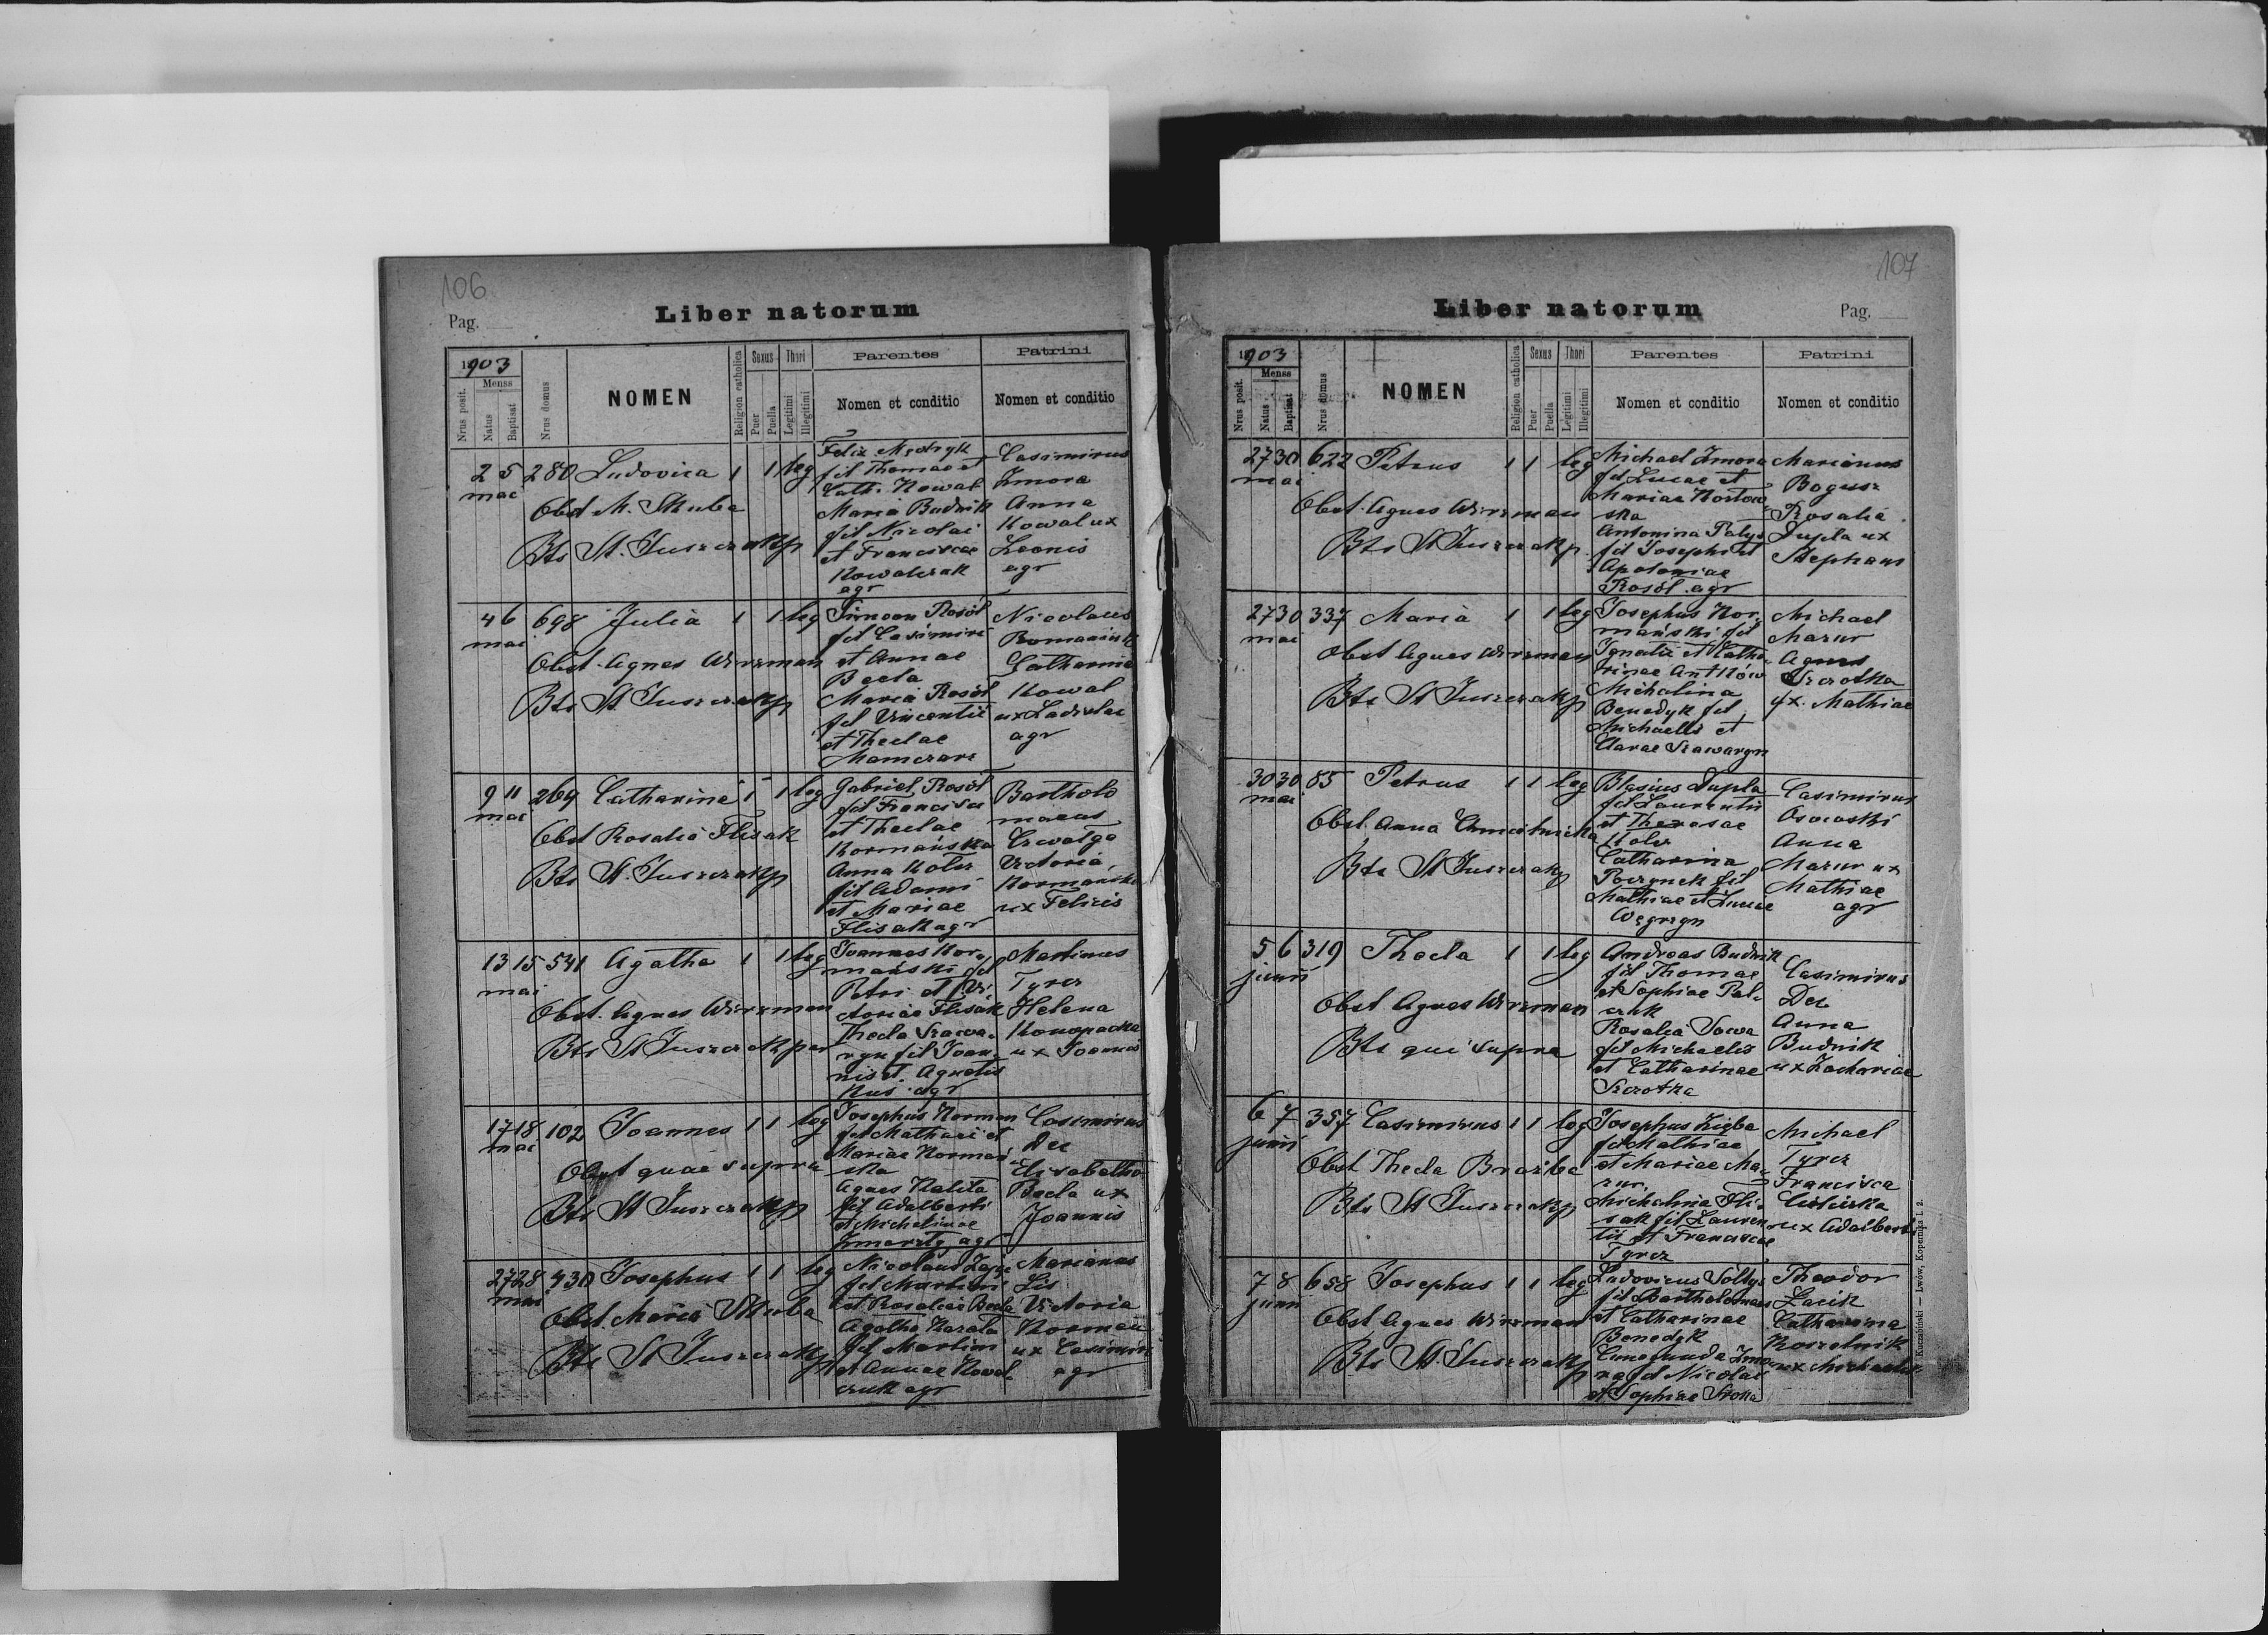 106
Pag.
Liber natorum
1903
Nrus posit.
Menss
Natus
Baptisat
Nrus domus
NOMEN
Religion catholica
Sexus
Puer
Puella
Thori
Legitimi
Illegitimi
Parentes
Nomen et conditio
Patrini
Nomen et conditio
2 5 280 Ludovica 1 1 leg
mai
Obst M. Skuba
Bts St. Juszczak p
Felix Mędryk
fil Thomae et
Cath. Kowal
Maria Budnik
fil Nicolai
et Franciscae
Kowalczak
agr
Casimirus
Zmora
Anna
Kowal ux
Leonis
agr
4 6 698 Julia 1 1 leg
mai
Obst. Agnes Wirzman
Bts St Juszczak p
Simeon Rosół
fil Casimiri
et Annae
Becla
Maria Rosół
fil Vincentii
et Theclae
Mamczarz
Nicolaus
Catharina
Kowal
ux Ladislai
agr
9 11 269 Catharina 1 1 leg
mai
Obst Rosalia Flisak
Bts St. Juszczak p
Gabriel Rosół
fil Francisci
et Theclae
Kormańska
Anna Kolcz
fil Adami
et Mariae
Flisak agr
Bartholo
maeus
Victoria
Kormańska
ux Felicis
13 15 541 Agatha 1 1 leg
mai
Obst. Agnes Wirzman
Bts St Juszczak par
Joannes Kor
mański fil
Petri et Vi
ctoriae Flisak
Thecla Szawa
ryn fil Joan
nis et Agnetis
Kus agr
Martinus
Tyrcz
Helena
Konopacka
ux Joannis
17 18 102 Joannes 1 1 leg
mai
Obst quae supra
Bts St Juszczak p
Josephus Korman
fil Mathaei et
Mariae Kormań
ska
Agnes Kalita
fil Adalberti
et Michalinae
agr
Casimirus
Dec
Elisabetha
Becla ux
Joannis
27 28 430 Josephus 1 1 leg
mai
Obst. Maria Skuba
Bts St Juszczak p
Nicolaus Zając
fil Martini
et Rosaliae Becla
Agatha Karala
fil Martini
et Annae Kowal
czuk agr
Marianus
Lis
Victoria
Korman
ux Casimiri
agr
107
Liber natorum
Pag.
1903
Nrus posit.
Menss
Natus
Baptisat
Nrus domus
NOMEN
Religion catholica
Sexus
Puer
Puella
Thori
Legitimi
Illegitimi
Parentes
Nomen et conditio
Patrini
Nomen et conditio
27 30 622 Petrus 1 1 leg
mai
Obst. Agnes Wirzman
Bts St Juszczak p.
Michael Zmora
fil Lucae et
Mariae Kostow
ska
Antonina Palys
fil Josephi et
Apoloniae
Rosół agr
Marianus
Bogusz
Rosalia
Dupla ux
Stephani
27 30 337 Maria 1 1 leg
mai
Obst Agnes Wirzman
Bts St Juszczak p
Josephus Kor
mański fil
Ignatii et Catha
rinae Antków
Michalina
Benedyk fil
Michaelis et
Clarae Szawaryn
Michael
Mazur
Agnes
Szczotka
ux. Mathiae
30 30 85 Petrus 1 1 leg
mai
Obst. Anna
Bts St Juszczak p
Blasius Dupla
fil Laurentii
et Theresae
Kolcz
Catharina
Poczynek fil
Mathiae et Luciae
Węgrzyn
Casimirus
Osowski
Anna
Mazur ux
Mathiae
agr
5 6 319 Thecla 1 1 leg
junii
Obst Agnes Wirzman
Bts qui supra
Andreas Budnik
fil Thomae
et Sophiae Pal
czuk
Rosalia Sowa
fil Michaelis
et Catharinae
Szczotka
Casimirus
Dec
Anna
Budnik
ux Zachariae
6 7 357 Casimirus 1 1 leg
junii
Obst Thecla Braźba
Bts St Juszczak p
Josephus Zięba
fil Mathiae
et Mariae Ma
zur
Michalina Fli
sak fil Lauren
tii et Franciscae
Tyrcz
Michael
Tyrcz
Francisca
ux Adalberti
7 8 658 Josephus 1 1 leg
junii
Obst Agnes Wirzman
Bts St. Juszczak p
Ludovicus Sołtys
fil Bartholomaei
et Catharinae
Benedyk
Cunegunda Zmo
ra fil Nicolai
et Sophiae Sroka
Theodor
Łacik
Catharina
Koszelnik
ux Michaelis
Kuczabiński — Lwów, Kopernika l. 2.